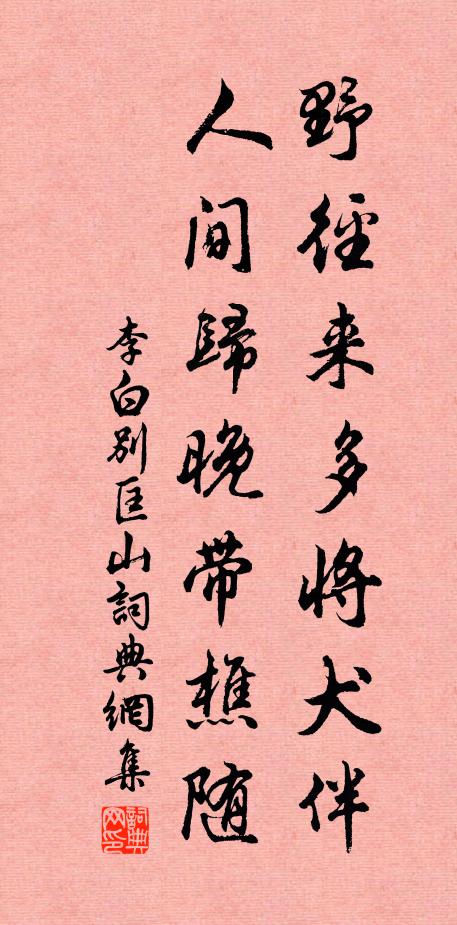 野徑来多將犬伴
人间歸晚带樵随
李白别匡山詞典網集
詞典网印